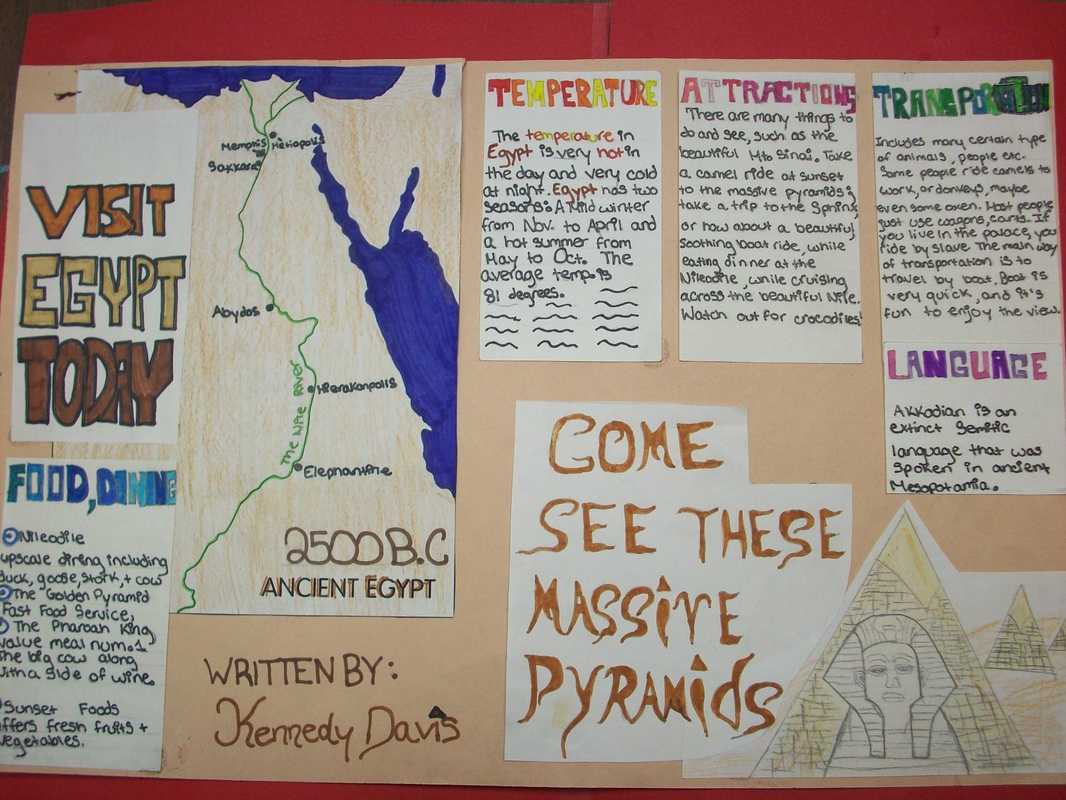 VISIT
EGYPT
TODAY
FOOD, DINING
Nileodile
upscale dining including
duck, goose, stork, + cow
The "Golden Pyramid
Fast Food Service,
The Pharoah King
value meal num.1
The big cow along
with a side of wine.
Sunset Foods
offers fresh fruits +
vegetables.
Memphis
Heliopolis
Sakkara
Abydos
Hierakonpolis
The Nile River
Elephantine
2500 B.C
ANCIENT EGYPT
WRITTEN BY:
Kennedy Davis
TEMPERATURE
The temperature in
Egypt is very hot in
the day and very cold
at night. Egypt has two
seasons: A Mild winter
from Nov. to April and
a hot summer from
May to Oct. The
average temp. is
81 degrees.
ATTRACTIONS
There are many things to
do and see, such as the
beautiful Mt. Sinai. Take
a camel ride at sunset
to the massive pyramids;
take a trip to the Sphinx,
or how about a beautiful,
soothing boat ride, while
eating dinner at the
Nileodile, while cruising
across the beautiful Nile.
Watch out for crocodiles!
TRANSPORTATION
Includes many certain type
of animals, people etc.
Some people ride camels to
work, or donkeys, maybe
even some oxen. Most people
just use wagons, carts. If
you live in the palace, you
ride by slave. The main way
of transportation is to
travel by boat. Boat is
very quick, and it's
fun to enjoy the view.
LANGUAGE
Akkadian is an
extinct Semitic
language that was
spoken in ancient
Mesopotamia.
COME
SEE THESE
MASSIVE
PYRAMIDS